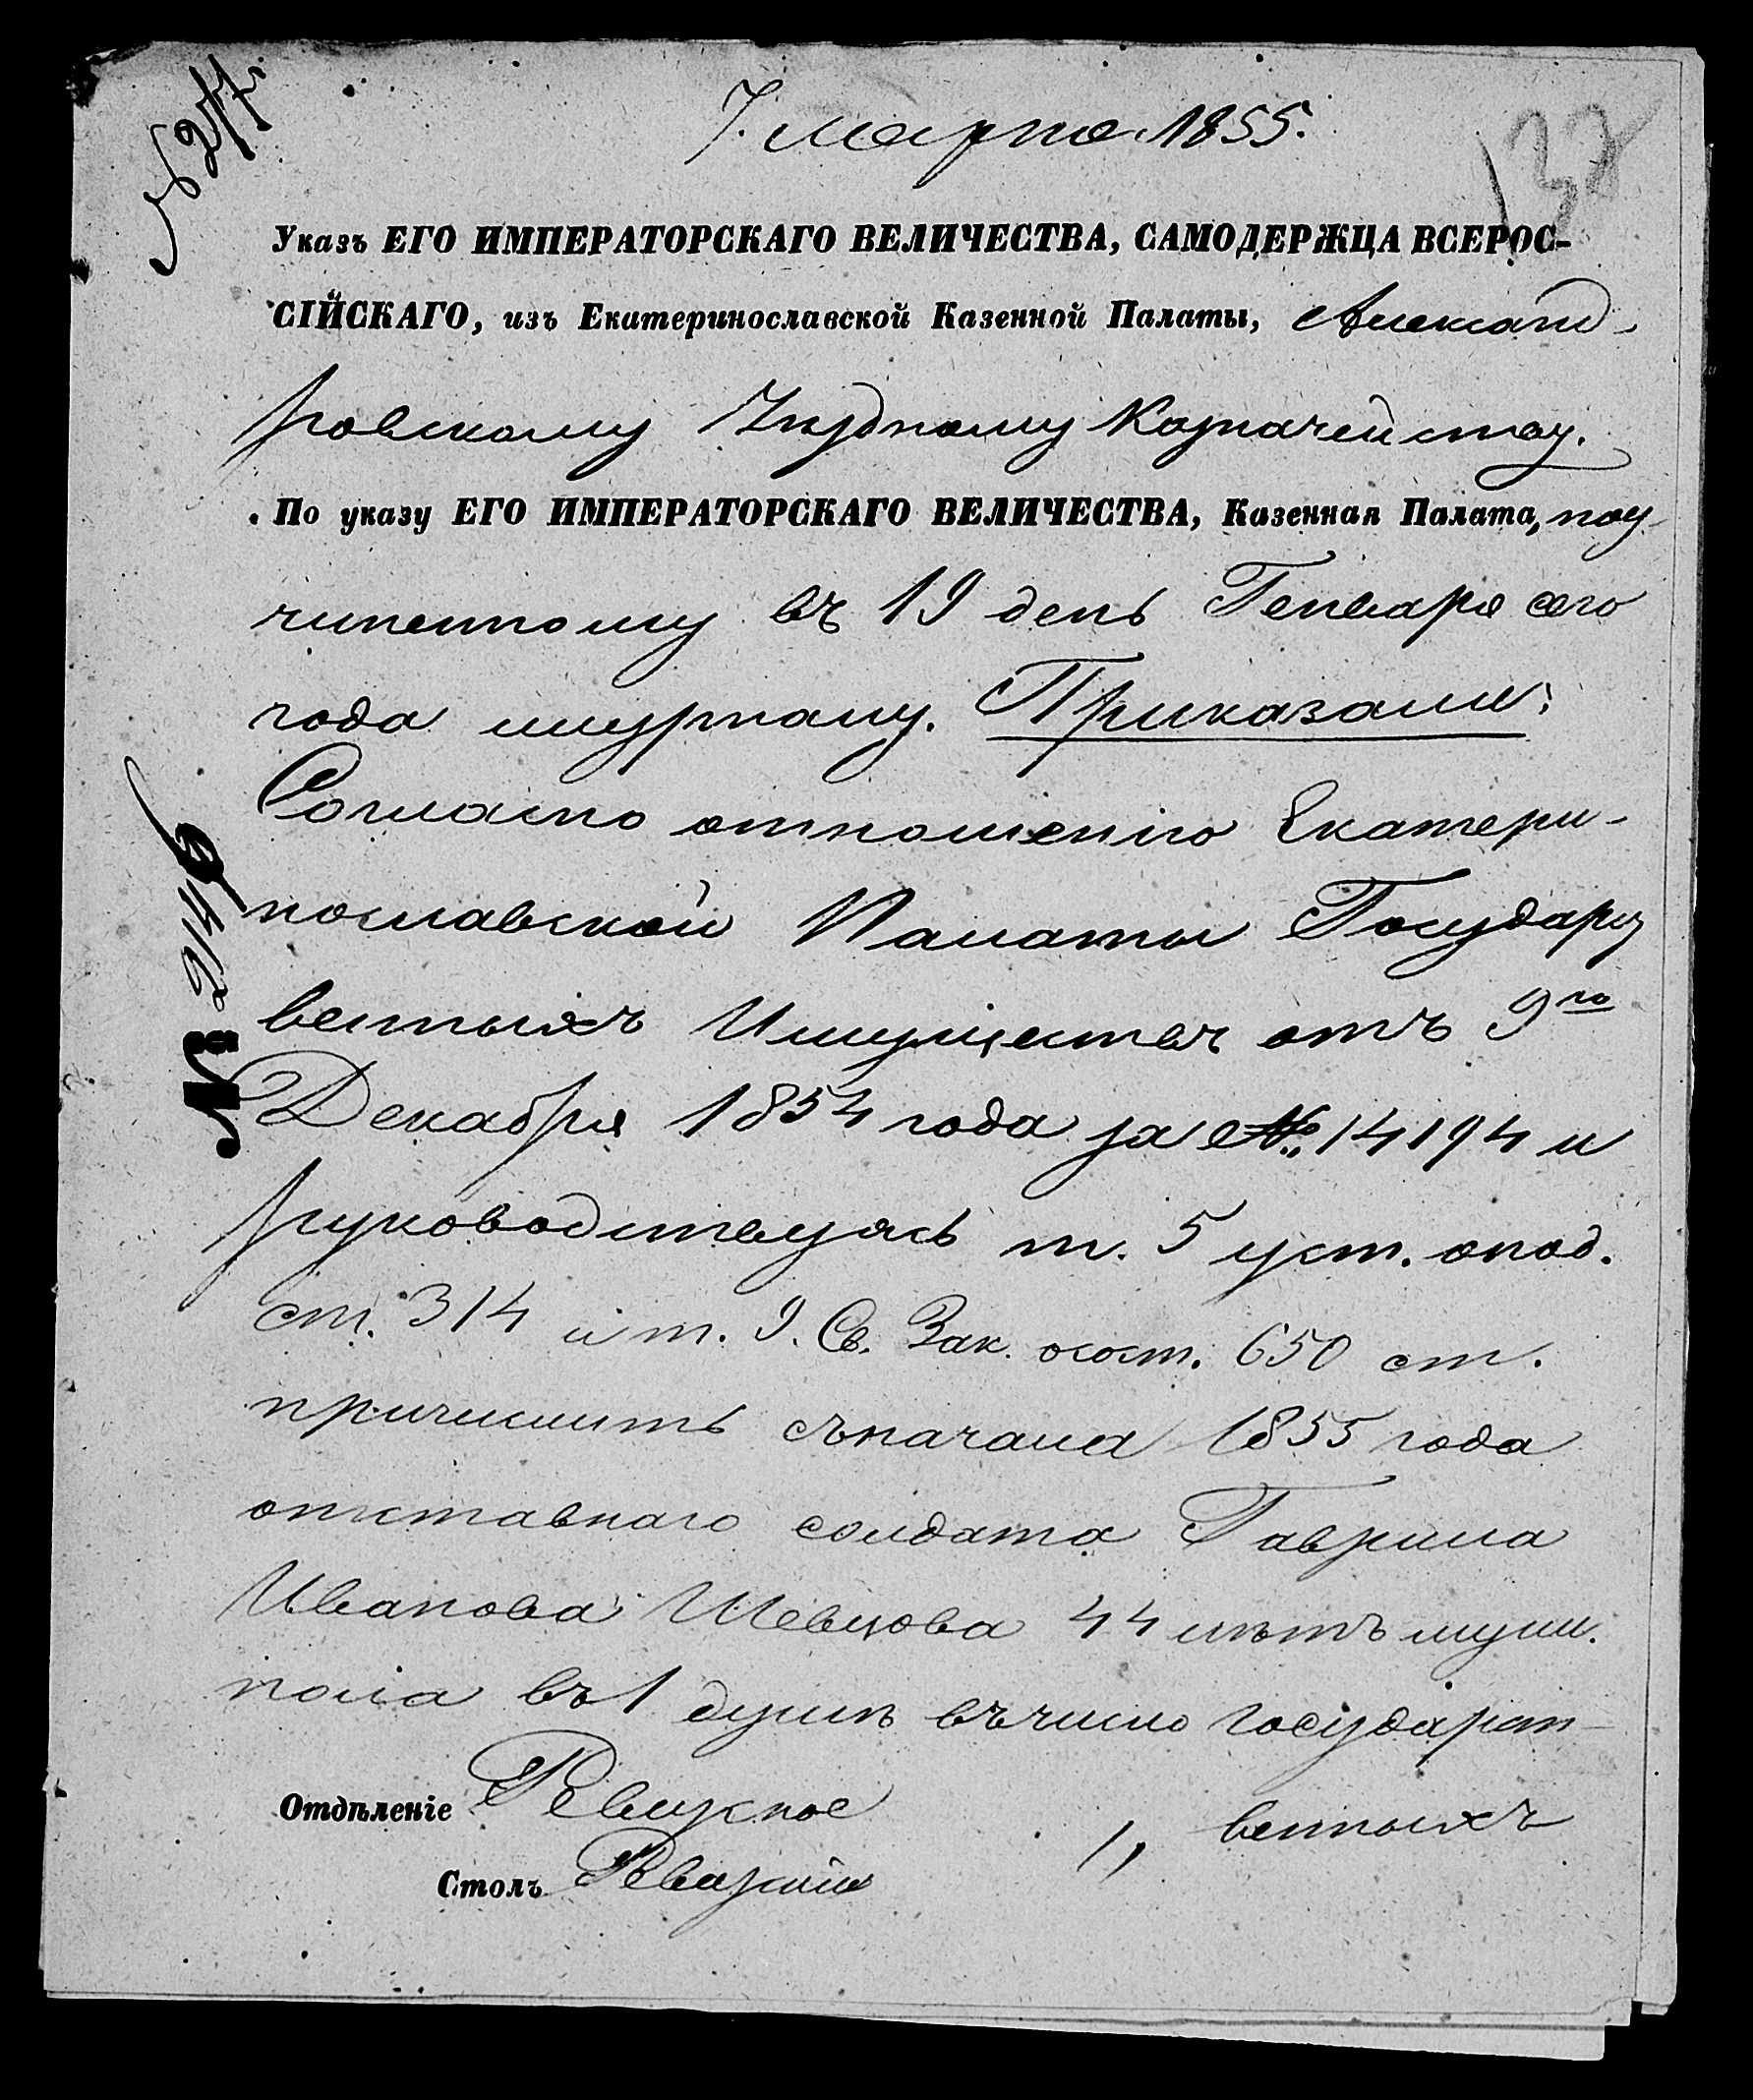 № 277.
7. Марта 1855.
Указъ ЕГО ИМПЕРАТОРСКАГО ВЕЛИЧЕСТВА, САМОДЕРЖЦА ВСЕРОС-
СІЙСКАГО, изъ Екатеринославской Казенной Палаты, Александ-
ровскому Уѣздному Казначейству.
По указу ЕГО ИМПЕРАТОРСКАГО ВЕЛИЧЕСТВА, Казенная Палата, по у-
чиненному въ 19 день Генваря сего
года журналу. Приказали:
Согласно отношенію Екатери-
нославской Палаты Государст
венныхъ Имуществъ отъ 9го
Декабря 1854 года за № 14194 и
руководствуясь т. 5 уст. о под.
ст. 314 и т. 9. Св. Зак. о сост. 650 ст.
причислить съ начала 1855 года
отставнаго солдата Гаврила
Иванова Шевцова 44 лѣтъ муж.
пола въ 1 душѣ въ число государст-
Отдѣленіе Ревизское
венныхъ
Столъ Ревизскій
№ 2146